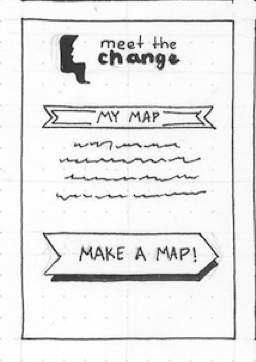 meet the
change
MY MAP
MAKE A MAP!